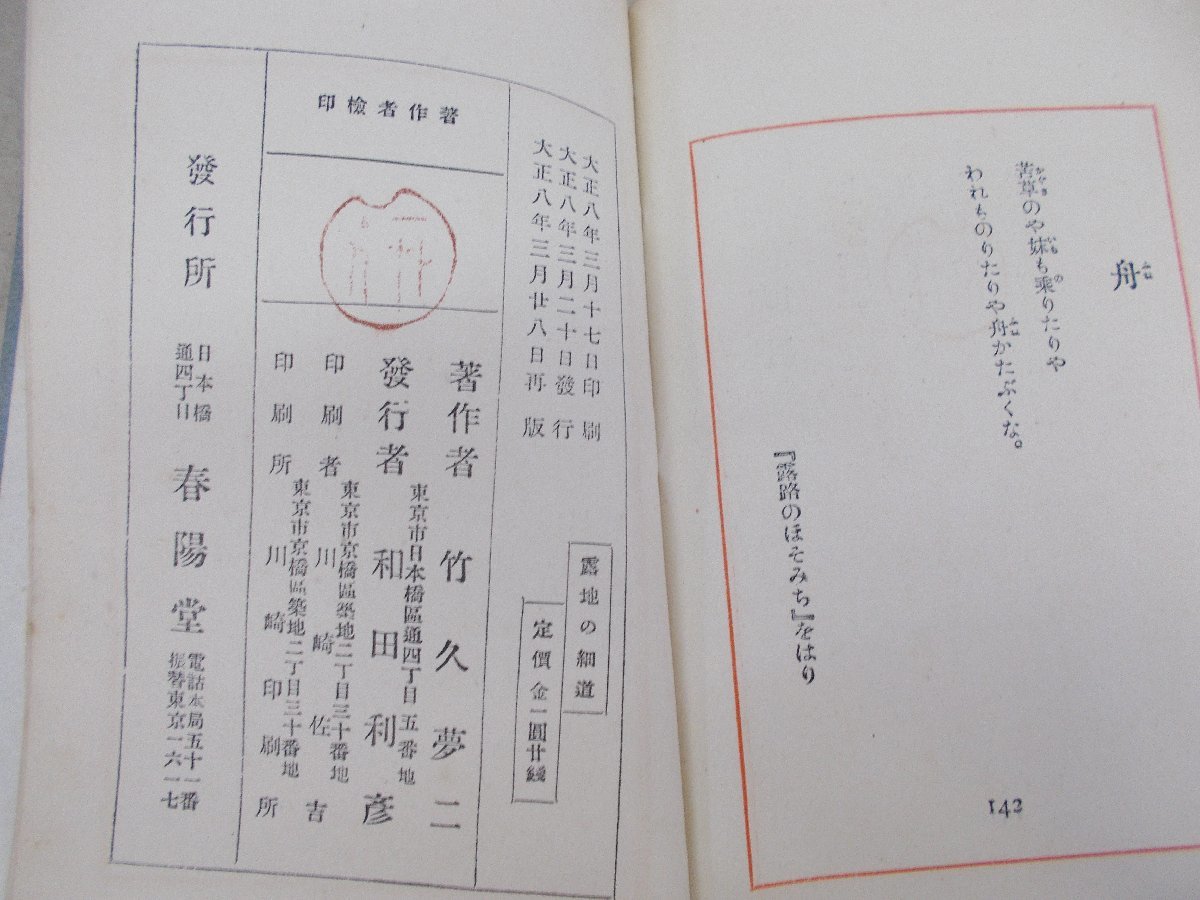 舟
ふね
苫草のや妹も乘りたりや
われものりたりや舟かたぶくな。
ふね
『露路のほそみち』をはり
142
大正八年三月十七日印刷
大正八年三月二十日發行
大正八年三月廿八日再版
露地の細道
定價金一圓廿錢
著作者檢印
著作者 竹久夢二
東京市日本橋區通四丁目五番地
發行者 和田利彥
東京市京橋區築地二丁目三十番地
印刷者 川崎佐吉
東京市京橋區築地二丁目三十番地
印刷所 川崎印刷所
發行所
日本橋
通四丁目
春陽堂
電話本局五十一番
振替東京一六一七